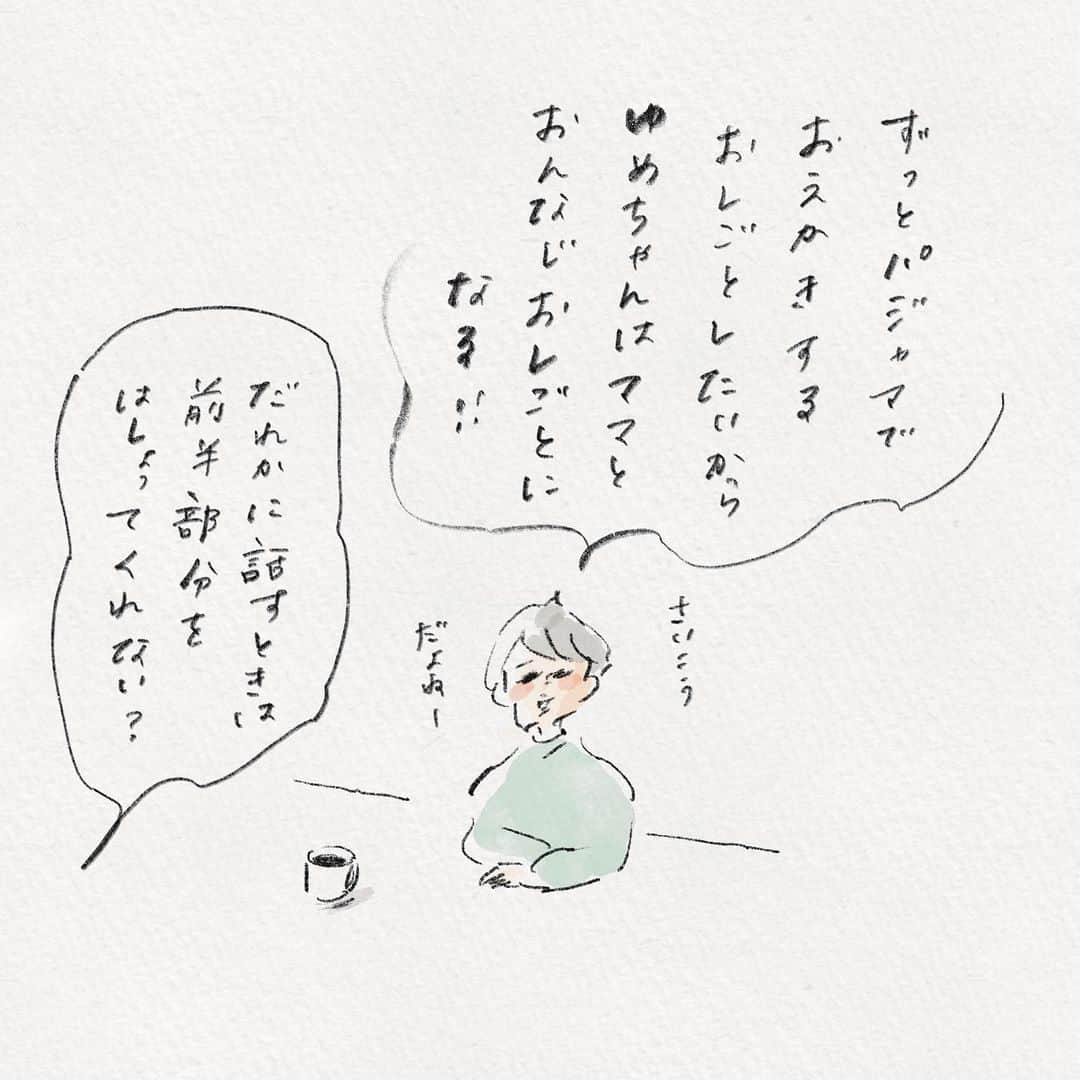 ずっとパジャマで
おえかきする
おしごとしたいから
ゆめちゃんはママと
おんなじおしごとに
なる!!
さいこう
だよねー
だれかに話すときは
前半部分を
はしょってくれない?